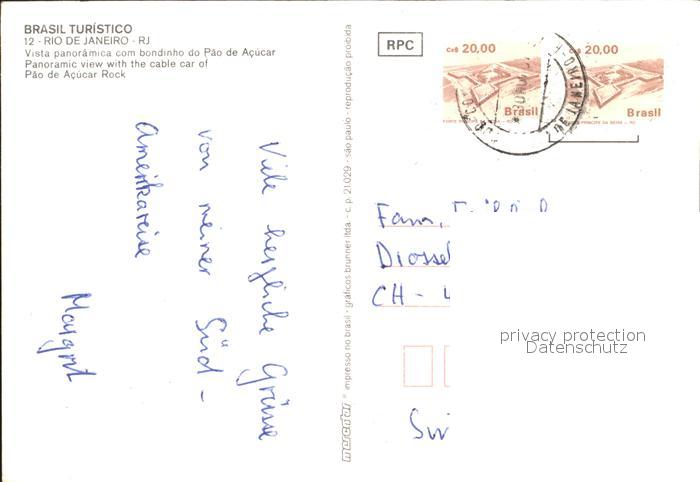 BRASIL TURÍSTICO
12 - RIO DE JANEIRO - RJ
Vista panorâmica com bondinho do Pão de Açúcar
Panoramic view with the cable car of
Pão de Açúcar Rock
Viele herzliche Grüsse
von meiner Süd-
Amerikareise
Margrit
mercator ® impresso no brasil - gráficos brunner ltda - c. p. 21.029 - são paulo - reprodução proibida
RPC
Cz$ 20,00
Brasil
Cz$ 20,00
Brasil
DE JANEIRO
Fam.
CH - 4
privacy protection
Datenschutz